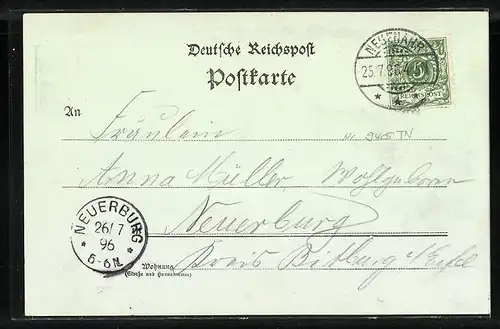 Deutsche Reichspost
Postkarte
NEUENAHR
25.7.96
5
REICHSPOST
An
Fräulein
Nr. 9465 TN
Anna Müller, Wohlgeboren
Neuerburg
NEUERBURG
26/ 7
96
5-6N.
Kreis Bitburg i/ Eifel
Wohnung
(Straße und Hausnummer)